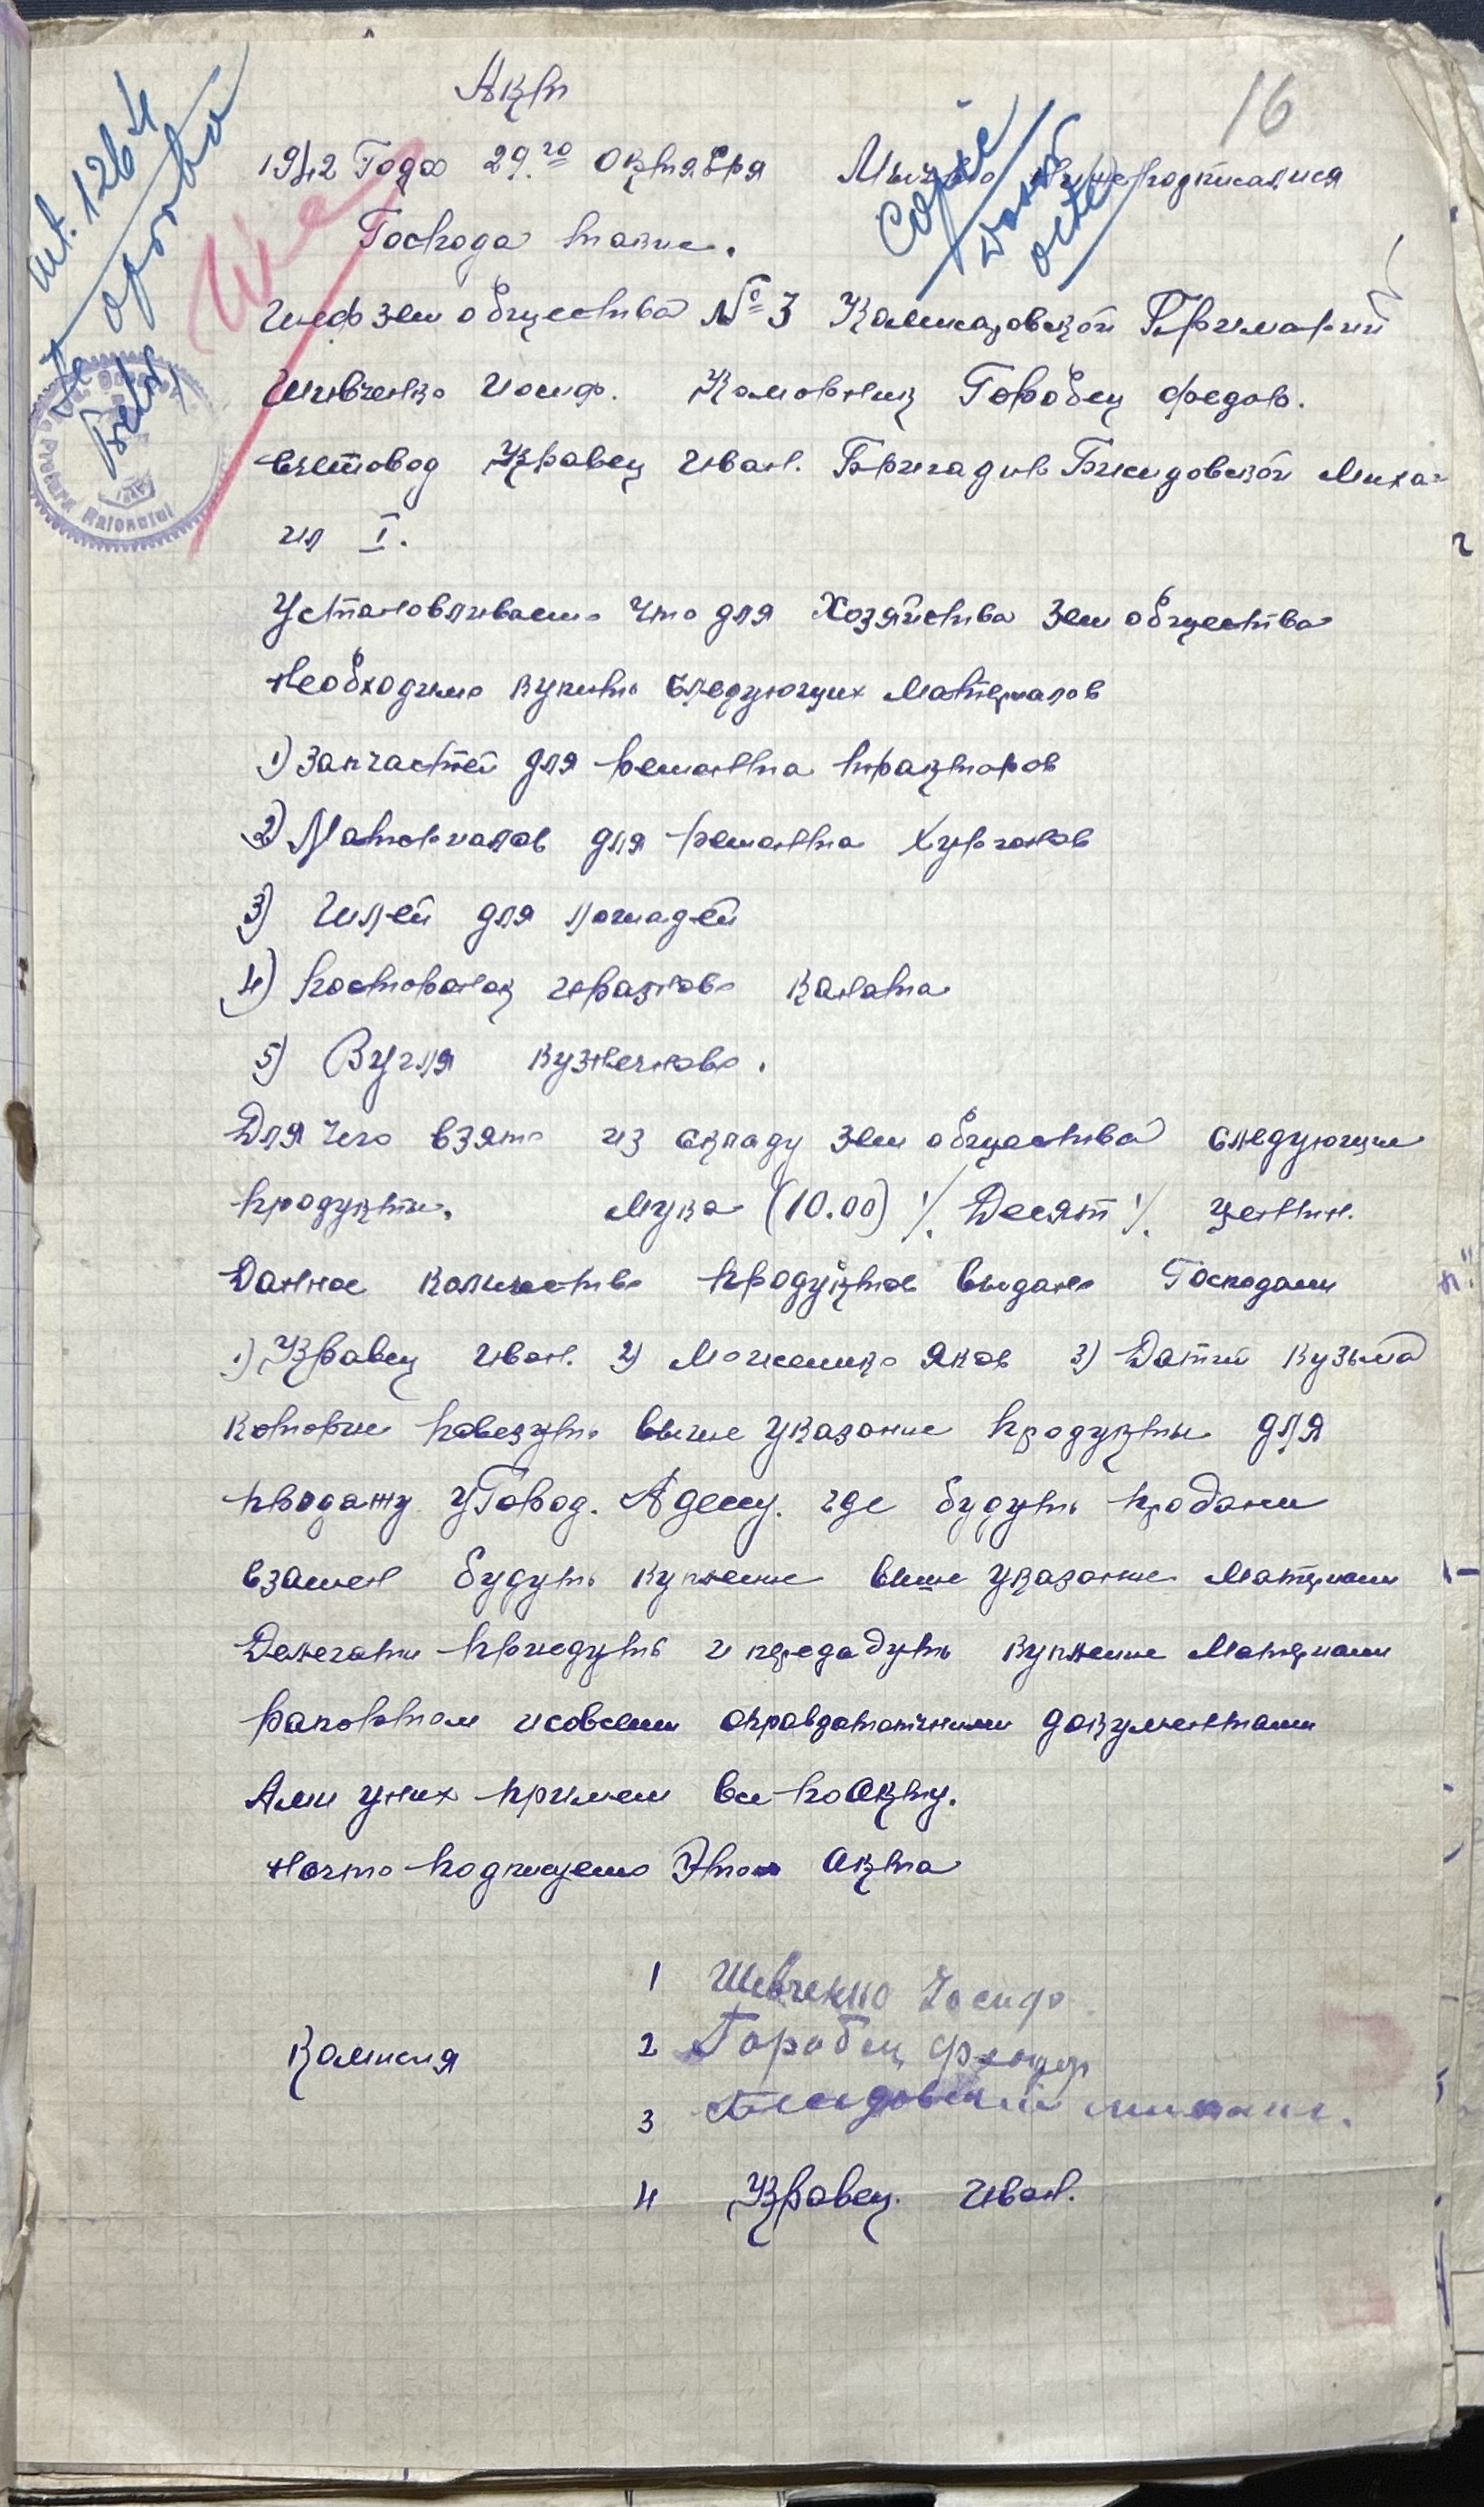 16
Акт
1942 Года 29.го Октября Мы ниже подписалися
Господа такие.
Шеф зем общества № 3 Примарии
Шивченко Иосиф. Коморник Горобец Федор.
Счетовод Кравец Иван. Бригадир Бисидовской Миха-
ил I.
Установливаем что для Хозяйства Зем общества
Необходимо купить следующих Материалов
1) Запчастей для ремонта тракторов
2) Маториалов для ремонта Хургонов
3) Шлей для лошадей
4) Посторонок каната
5) Вугля кузнечново.
Для чего взято из складу Зем общества следующие
продукты. Мука (10.00) % Десят % центн.
Данное количество продуктов выдано Господам
1) Кравец Иван. 2) Яков 3) Кузьма
Которие повезуть выше указание продукты для
продажу у Город. Адессу. где будуть продани
взамен будуть купление више указание Материали
Делегати приедуть и передадуть купление Материали
рапортом исовсеми оправдательними документами
Ами уних примем все по Акту.
На что подписуемо Этого Акта
Комисия
1 Шевченко Иосиф
2 Горобец Федор
3 Бисидовский михаил.
4 Кравец. Иван.
Art. 1264
Pretura Raionului